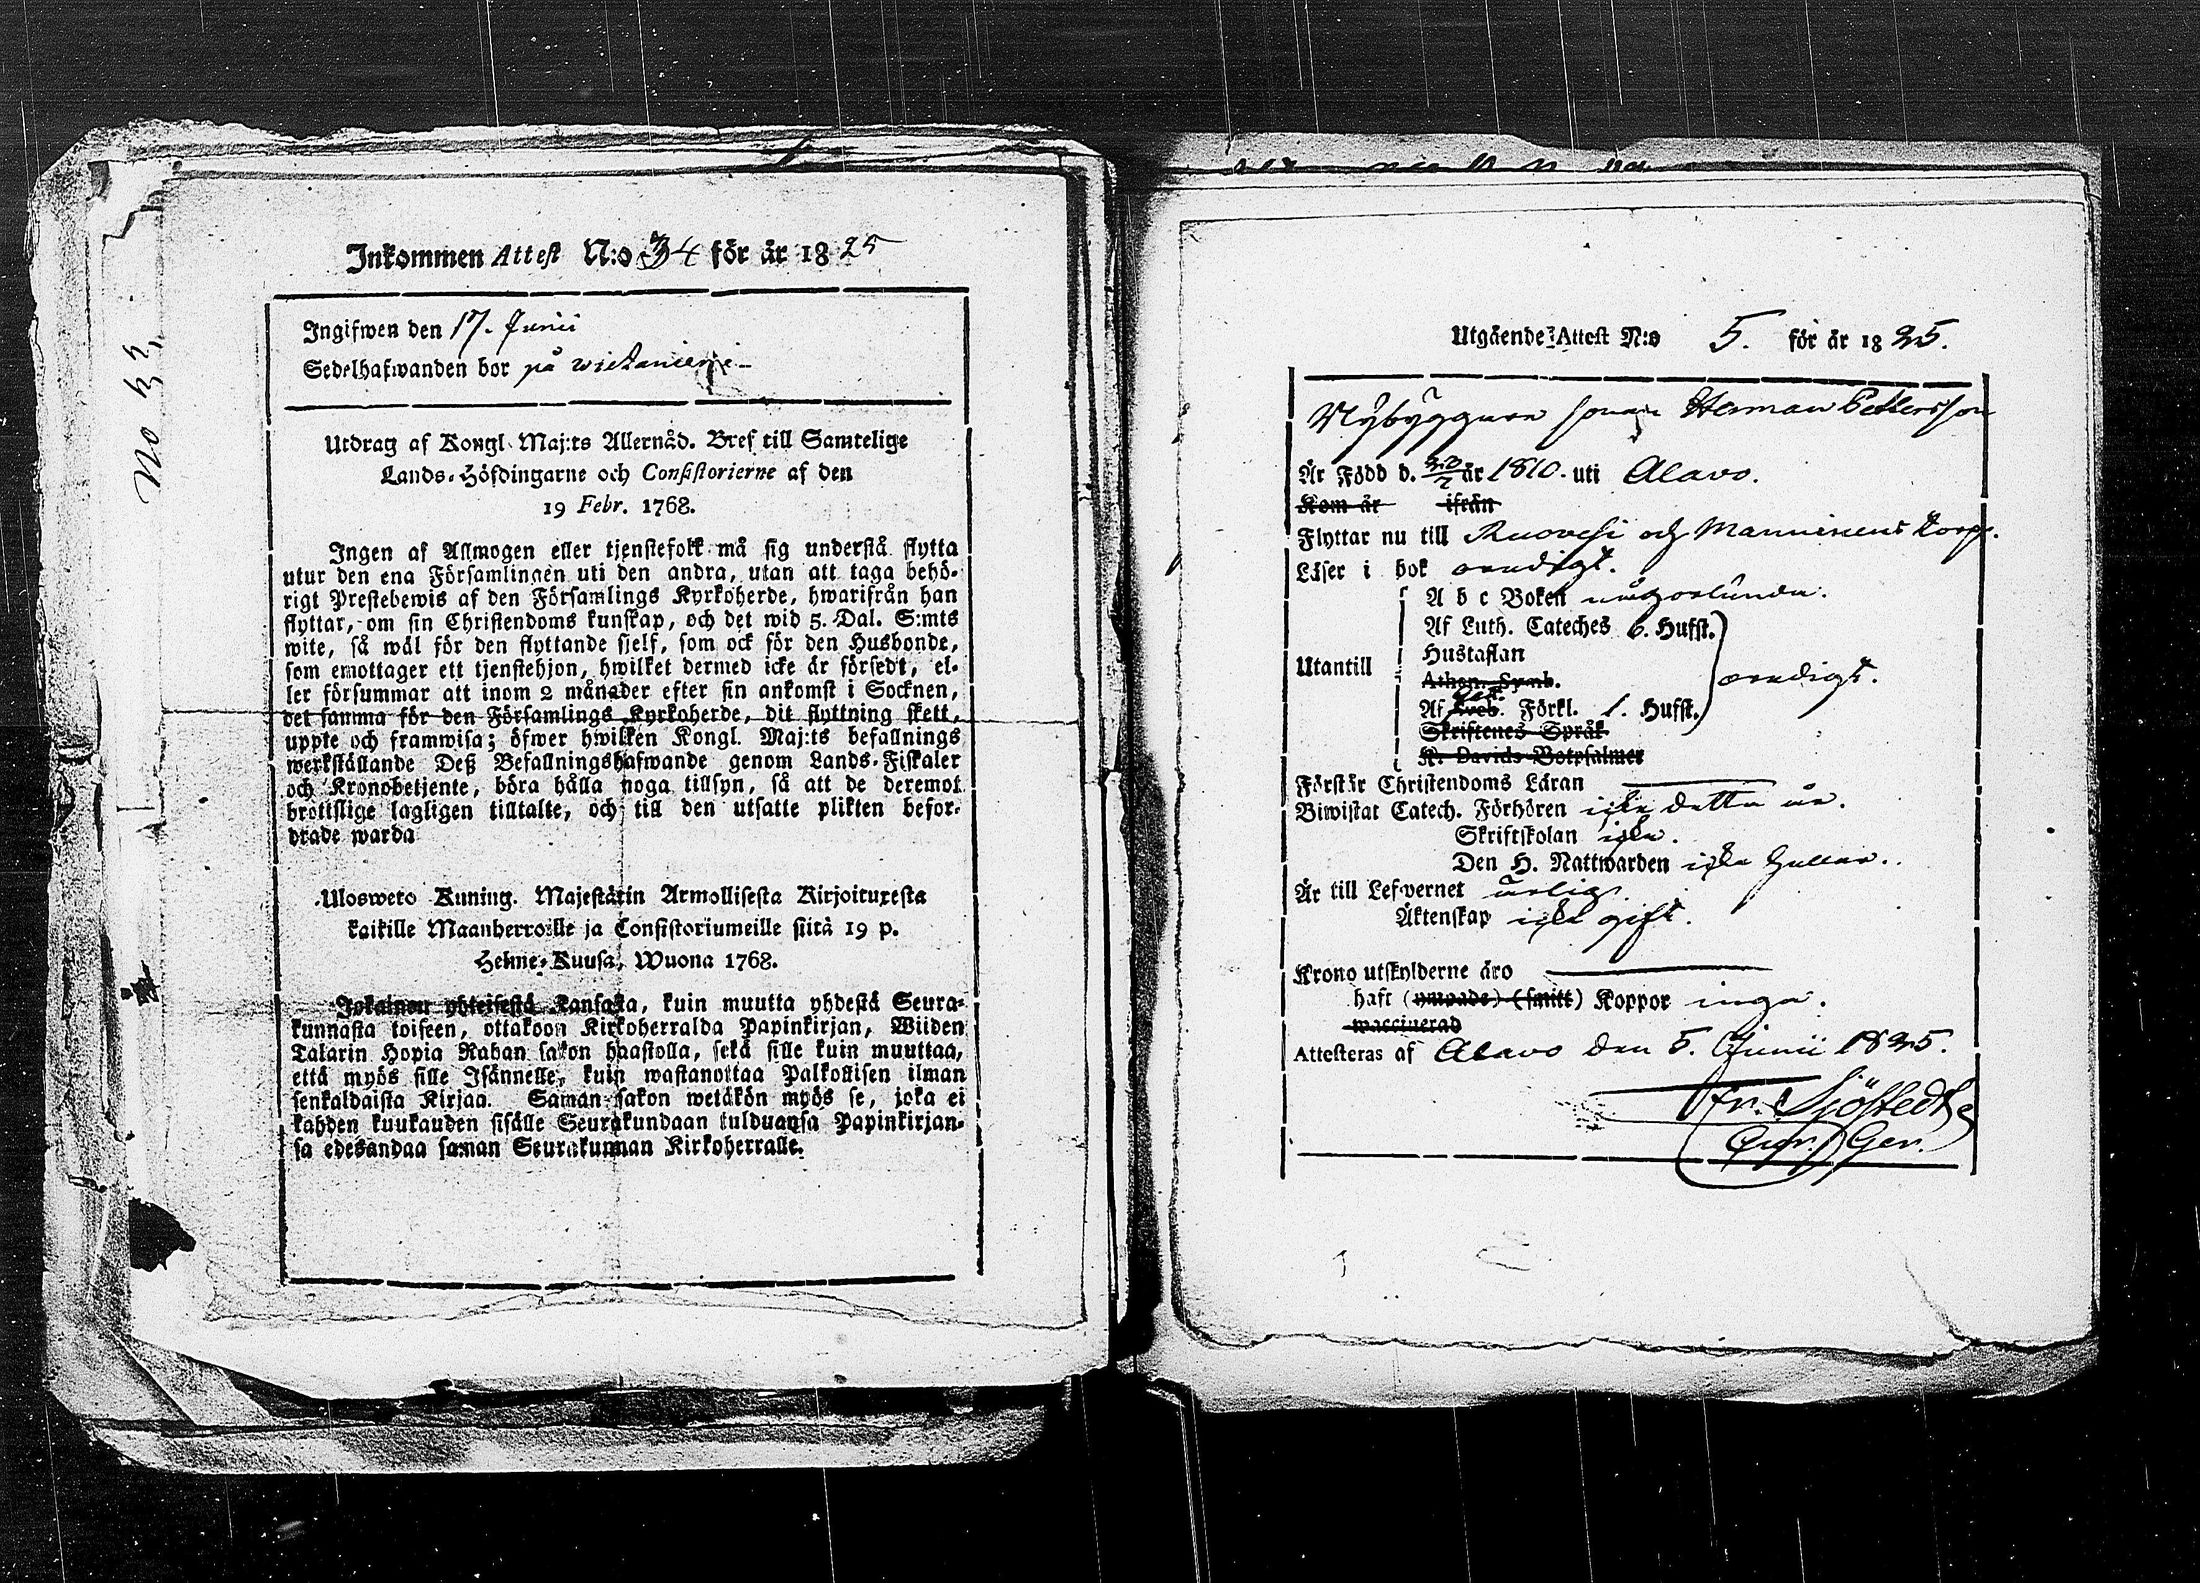 No 33,
Inkommen Attest N:o 34 för år 1825
Ingifwen den 17. Junii
Sedelhafwanden bor på
Utdrag af Kongl. Maj:ts Allernåd. Bref till Samtelige
Lands-Höfdingarne och Consistorierne af den
19 Febr. 1768.
Ingen af Allmogen eller tjenstefolk må sig understå flytta
utur den ena Församlingen uti den andra, utan att taga behö-
rigt Prestebewis af den Församlings Kyrkoherde, hwarifrån han
flyttar, om sin Christendoms kunskap, och det wid 5. Dal. S:mts
wite, så wäl för den flyttande sjelf, som ock för den Husbonde,
som emottager ett tjenstehjon, hwilket dermed icke är försedt, el-
ler försummar att inom 2 månader efter sin ankomst i Socknen,
det samma för den Församlings Kyrkoherde, dit flyttning skett,
uppte och framwisa; öfwer hwilken Kongl. Maj:ts befallnings
werkställande Deß Befallningshafwande genom Lands-Fiskaler
och Kronobetjente, böra hålla noga tillsyn, så att de deremot
brottslige lagligen tilltalte, och till den utsatte plikten befor-
drade warda
Ulosweto Kuning. Majestätin Armollisesta Kirjoituxesta
kaikille Maanherroille ja Consistoriumeille siitä 19 p.
Helme-Kuusa, Wuona 1768.
Jokainen yhteisestä Kansasta, kuin muutta yhdestä Seura-
kunnasta toiseen, ottakoon Kirkoherralda Papinkirjan, Wiiden
Talarin Hopia Rahan sakon haastolla, sekä sille kuin muuttaa,
että myös sille Isännelle, kuin wastanottaa Palkollisen ilman
senkaldaista Kirjaa. Saman sakon wetäkön myös se, joka ei
kahden kuukauden sisälle Seurakundaan tulduansa Papinkirjan-
sa edesandaa saman Seurakunnan Kirkoherralle.
Utgående Attest N:o 5. för år 1825.
Nybyggare sonen Herman Pettersson
Är Född d. 20/7 år 1810. uti Alavo.
Kom år ifrån
Flyttar nu till Ruovesi och Manninens torp.
Läser i bok oredigt.
A b c Boken någorlunda.
Af Luth. Cateches 6. Hufst.
Hustaflan
Utantill
Athan. Symb. oredigt.
Af Sveb. Förkl. 1. Hufst.
Skriftenes Språk
K. Davids Botpsalmer
Förstår Christendoms Läran
Biwistat Catech. Förhören icke detta år.
Skriftskolan icke.
Den H. Nattwarden icke heller.
Är till Lefvernet ärlig.
Äktenskap icke gift.
Krono utskylderne äro
haft (ympade) (smitt) Koppor inga.
waccinerad
Attesteras af Alavo den 5. Junii 1825.
Fr. Sjöstedt